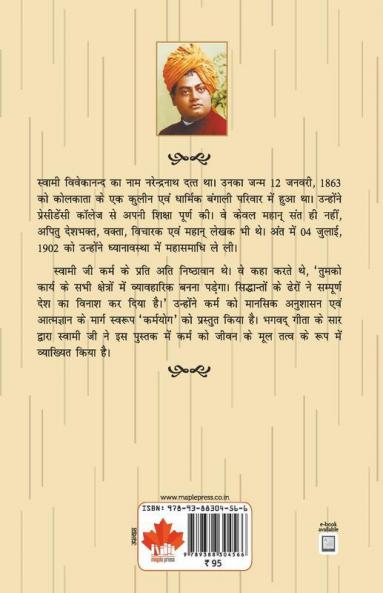 स्वामी विवेकानन्द का नाम नरेन्द्रनाथ दत्त था। उनका जन्म 12 जनवरी, 1863
को कोलकाता के एक कुलीन एवं धार्मिक बंगाली परिवार में हुआ था। उन्होंने
प्रेसीडेंसी कॉलेज से अपनी शिक्षा पूर्ण की। वे केवल महान् संत ही नहीं,
अपितु देशभक्त, वक्ता, विचारक एवं महान् लेखक भी थे। अंत में 04 जुलाई,
1902 को उन्होंने ध्यानावस्था में महासमाधि ले ली।
स्वामी जी कर्म के प्रति अति निष्ठावान थे। वे कहा करते थे, 'तुमको
कार्य के सभी क्षेत्रों में व्यावहारिक बनना पड़ेगा। सिद्धान्तों के ढेरों ने सम्पूर्ण
देश का विनाश कर दिया है।' उन्होंने कर्म को मानसिक अनुशासन एवं
आत्मज्ञान के मार्ग स्वरूप 'कर्मयोग' को प्रस्तुत किया है। भगवद् गीता के सार
द्वारा स्वामी जी ने इस पुस्तक में कर्म को जीवन के मूल तत्व के रूप में
व्याख्यित किया है।
www.maplepress.co.in
ISBN: 978-93-88304-56-6
maple press
9 789388 304566
₹ 95
e-book
available